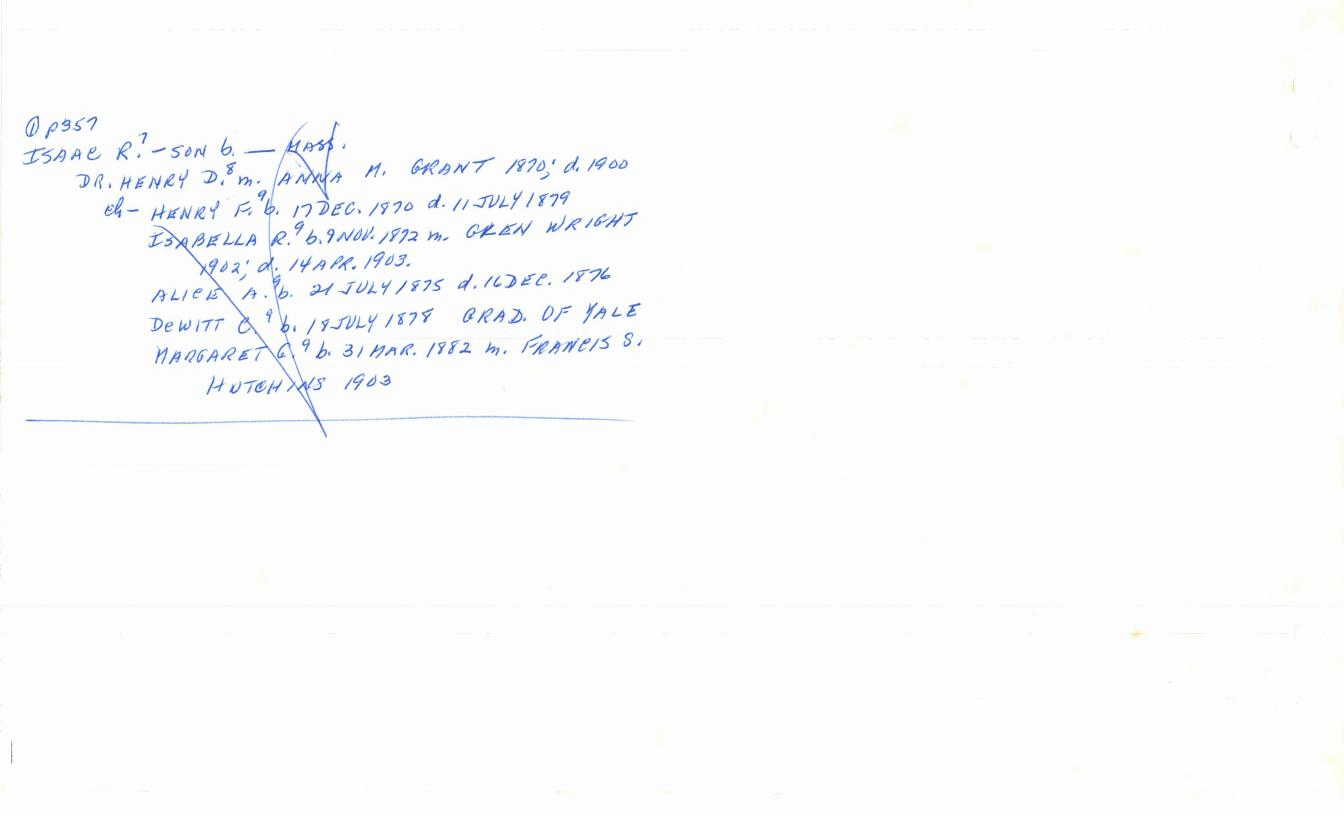 ① p357
ISAAC R.⁷ - SON b. — MASS.
DR. HENRY D.⁸ m. ANNA M. GRANT 1870; d. 1900
ch - HENRY F.⁹ b. 17 DEC. 1870 d. 11 JULY 1879
ISABELLA R.⁹ b. 9 NOV. 1872 m. GREN WRIGHT
1902; d. 14 APR. 1903.
ALICE A.⁹ b. 21 JULY 1875 d. 16 DEC. 1876
DeWITT C.⁹ b. 18 JULY 1878 GRAD. OF YALE
MARGARET C.⁹ b. 31 MAR. 1882 m. FRANCIS S.
HUTCHINS 1903